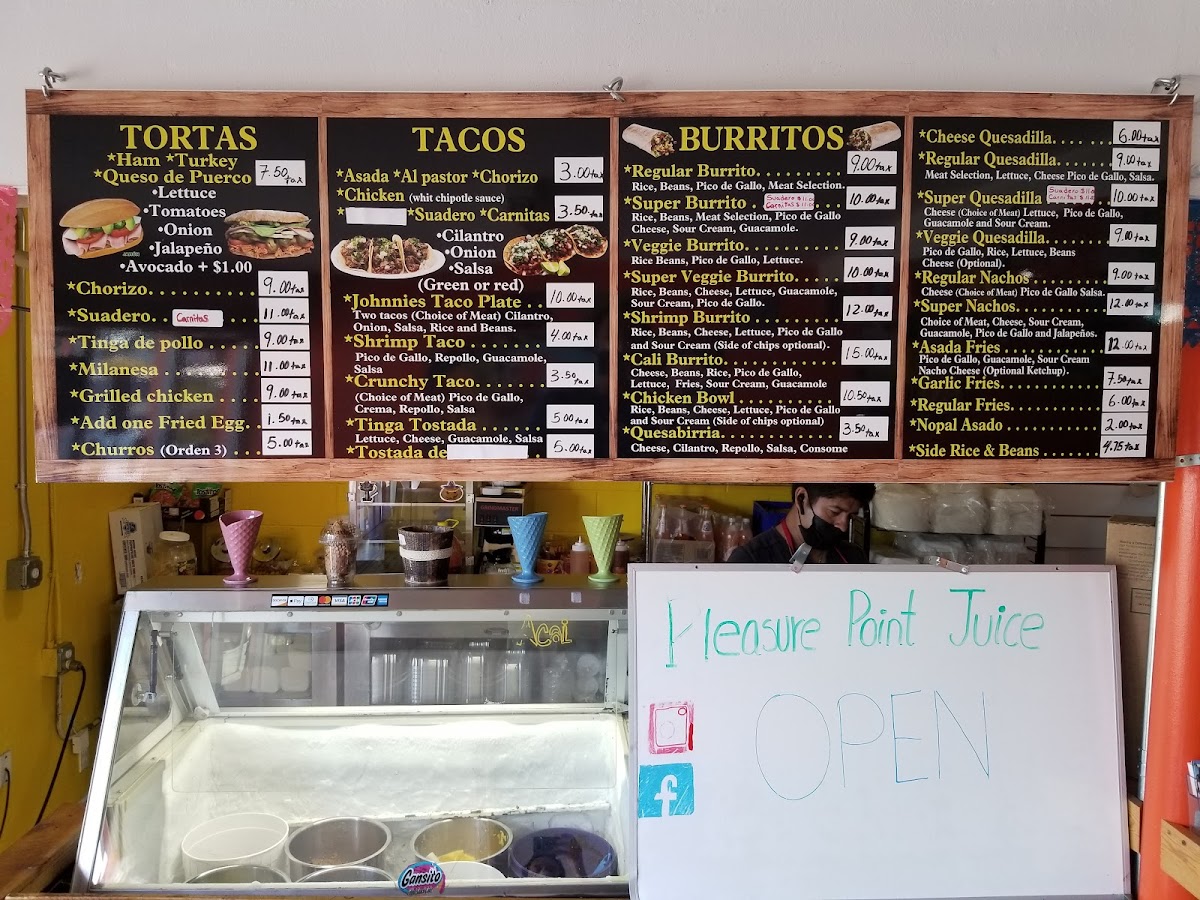 TORTAS
*Ham *Turkey
*Queso de Puerco 7.50 tax
•Lettuce
•Tomatoes
•Onion
•Jalapeño
•Avocado + $1.00
*Chorizo. . . . . . . . . . 9.00 tax
*Suadero. . Carnitas . . . 11.00 tax
*Tinga de pollo . . . . . 9.00 tax
*Milanesa . . . . . . . . 11.00 tax
*Grilled chicken . . . . 9.00 tax
*Add one Fried Egg. . 1.50 tax
*Churros (Orden 3) . . . 5.00 tax
TACOS
*Asada *Al pastor *Chorizo 3.00 tax
*Chicken (whit chipotle sauce)
*Suadero *Carnitas 3.50 tax
•Cilantro
•Onion
•Salsa
(Green or red)
*Johnnies Taco Plate . . 10.00 tax
Two tacos (Choice of Meat) Cilantro,
Onion, Salsa, Rice and Beans.
*Shrimp Taco . . . . . . . . 4.00 tax
Pico de Gallo, Repollo, Guacamole,
Salsa
*Crunchy Taco. . . . . . . 3.50 tax
(Choice of Meat) Pico de Gallo,
Crema, Repollo, Salsa
*Tinga Tostada . . . . . . 5.00 tax
Lettuce, Cheese, Guacamole, Salsa
*Tostada de 5.00 tax
BURRITOS
*Regular Burrito. . . . . . . . . 9.00 tax
Rice, Beans, Pico de Gallo, Meat Selection.
*Super Burrito . . Suadero $11.00 Carnitas $11.00 . . 10.00 tax
Rice, Beans, Meat Selection, Pico de Gallo
Cheese, Sour Cream, Guacamole.
*Veggie Burrito. . . . . . . . . . 9.00 tax
Rice Beans, Pico de Gallo, Lettuce.
*Super Veggie Burrito. . . . . 10.00 tax
Rice, Beans, Cheese, Lettuce, Guacamole,
Sour Cream, Pico de Gallo.
*Shrimp Burrito . . . . . . . . . 12.00 tax
Rice, Beans, Cheese, Lettuce, Pico de Gallo
and Sour Cream (Side of chips optional).
*Cali Burrito. . . . . . . . . . . . 15.00 tax
Cheese, Beans, Rice, Pico de Gallo,
Lettuce, Fries, Sour Cream, Guacamole
*Chicken Bowl . . . . . . . . . . 10.50 tax
Rice, Beans, Cheese, Lettuce, Pico de Gallo
and Sour Cream (Side of chips optional)
*Quesabirria. . . . . . . . . . . . 3.50 tax
Cheese, Cilantro, Repollo, Salsa, Consome
*Cheese Quesadilla. . . . . . 6.00 tax
*Regular Quesadilla. . . . . 9.00 tax
Meat Selection, Lettuce, Cheese Pico de Gallo, Salsa.
*Super Quesadilla Suadero $11.0 Carnitas $11.0 10.00 tax
Cheese (Choice of Meat) Lettuce, Pico de Gallo,
Guacamole and Sour Cream.
*Veggie Quesadilla. . . . . . 9.00 tax
Pico de Gallo, Rice, Lettuce, Beans
Cheese (Optional).
*Regular Nachos . . . . . . . 9.00 tax
Cheese (Choice of Meat) Pico de Gallo Salsa.
*Super Nachos. . . . . . . . . 12.00 tax
Choice of Meat, Cheese, Sour Cream,
Guacamole, Pico de Gallo and Jalapeños.
*Asada Fries . . . . . . . . . . 12.00 tax
Pico de Gallo, Guacamole, Sour Cream
Nacho Cheese (Optional Ketchup).
*Garlic Fries. . . . . . . . . . 7.50 tax
*Regular Fries. . . . . . . . . 6.00 tax
*Nopal Asado . . . . . . . . . 2.00 tax
*Side Rice & Beans . . . . . 4.75 tax
Acai
Pleasure Point Juice
OPEN
f
Gansito